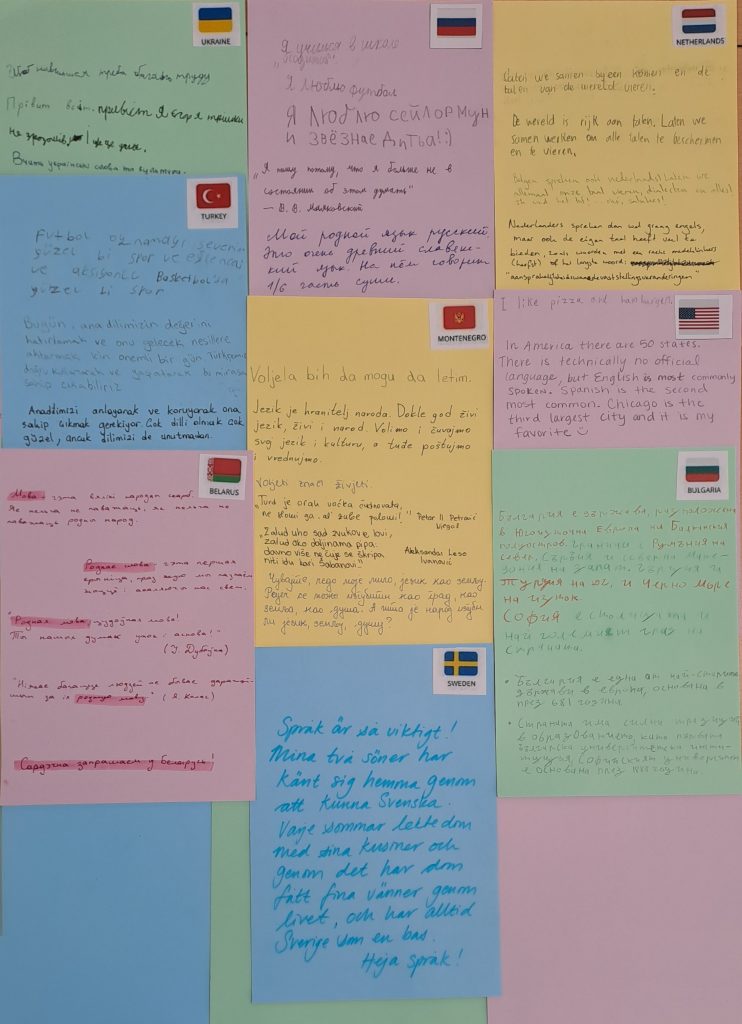 UKRAINE
Щоб навчитися треба багато труду
Привіт всім. привіт Я Єгор я трошки
не зрозумів,
Вчити українські слова та культуру.
Я учусься в школе
Я люблю футбол
Я люблю СЕЙЛОР МУН
И ЗВЁЗНАЕ ДИТЬА! :)
„Я пишу потому, что я больше не в
состоянии об этом думать"
— В. В. Маяковской
Мой родной язык русский
Это очень древний славен-
ский язык. На нём говорит
1/6 часть суши.
NETHERLANDS
Laten we samen bijeen komen en de
talen van de wereld vieren.
De wereld is rijk aan talen. Laten we
samen werken om alle talen te beschermen
en te vieren.
Belgen spreken ook nederlands! Laten we
allemaal onze taal vieren, dialecten en alles!
Nederlanders spreken dan wel graag engels,
maar ook de eigen taal heeft veel te
bieden, zoals woorden met een reeks medeklinkers
(herfst) of het langste woord:
"aansprakelijkheidswaardevaststellingsveranderingen"
TURKEY
Futbol oynamayı severim
güzel bi spor ve eğlenceli
ve aksiyonlu Basketbol'da
güzel bi spor
Bugün, ana dilimizin değerini
hatırlamak ve onu gelecek nesillere
aktarmak için önemli bir gün. Türkçemizi
doğru kullanarak ve yaşatarak bu mirasa
sahip çıkabiliriz
Anadilimizi anlayarak ve koruyarak ona
sahip çıkmak gerekiyor. Çok dilli olmak çok
güzel, ancak dilimizi de unutmadan.
MONTENEGRO
Voljela bih da mogu da letim.
Jezik je hranitelj naroda. Dokle god živi
jezik, živi i narod. Volimo i čuvajmo
svoj jezik i kulturu, a tuđe poštujmo
i vrednujmo.
Voljeti znači živjeti.
"Tvrd je orah voćka čudnovata,
ne slomi ga, al' zube polomi!" Petar II Petrović
Njegoš
"Zalud uho sad zvukove lovi,
zalud oko doljinama pipa.
davno više ne čuje se škripa
niti đu kari Šabanovi" Aleksandar Leso
Ivanović
Чувајте, чедо моје мило, језик као земљу.
Ријеч се може изгубити као град, као
земља, као душа. А шта је народ изгуби
ли језик, земљу, душу?
I like pizza and hamburgers.
In America there are 50 states.
There is technically no official
language, but English is most commonly
spoken. Spanish is the second
most common. Chicago is the
third largest city and it is my
favorite
BELARUS
Мова - гэта вялікі народны скарб.
Як нельга не паважаць, як нельга не
паважаць родны народ.
Родная мова - гэта першая
крыніца, праз якую мы пазнаём
жыццё і акаляючы нас свет.
"Родная мова, чудоўная мова!
Ты нашых думак уток і аснова!"
(У. Дубоўка)
"Няма багацця людзей не бывае даражэй-
шым за іх родную мову" (Я. Колас)
Сардэчна запрашаем у Беларусь!
BULGARIA
България е държава, разположена
в Югоизточна Европа на Балканския
полуостров. Граничи с Румъния на
север, Сърбия и северна Маке-
дония на запад, Гърция и
Турция на юг, и Черно море
на изток.
София е столицата и
най големият град на
страната.
• България е една от най-старите
държави в европа, основана в
през 681 година.
• Страната има силни традиции
в образованието, като първата
българска университетска инсти-
туция, Софийският университет
е основана през 1888 година.
SWEDEN
Språk är så viktigt!
Mina två söner har
känt sig hemma genom
att kunna Svenska.
Varje sommar lekte dom
med sina kusiner och
genom det har dom
fått fina vänner genom
livet, och har alltid
Sverige som en bas.
Heja språk!